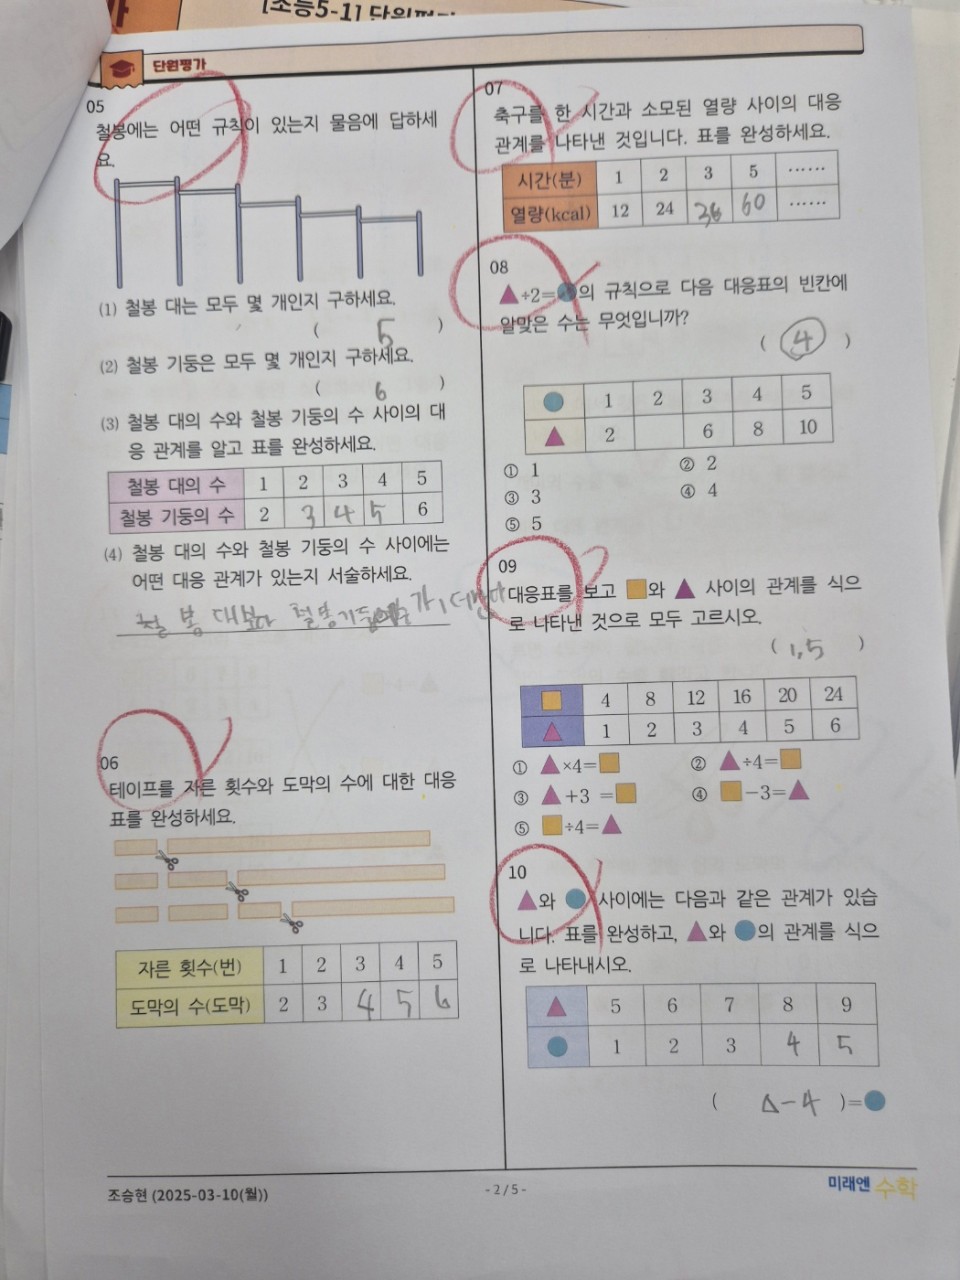 [초등5-1] 단원평가
단원평가
05
철봉에는 어떤 규칙이 있는지 물음에 답하세
요.
(1) 철봉 대는 모두 몇 개인지 구하세요.
( 5 )
(2) 철봉 기둥은 모두 몇 개인지 구하세요.
( 6 )
(3) 철봉 대의 수와 철봉 기둥의 수 사이의 대
응 관계를 알고 표를 완성하세요.
철봉 대의 수 1 2 3 4 5
철봉 기둥의 수 2 3 4 5 6
(4) 철봉 대의 수와 철봉 기둥의 수 사이에는
어떤 대응 관계가 있는지 서술하세요.
철봉 대보다 철봉기둥 가 1
06
테이프를 자른 횟수와 도막의 수에 대한 대응
표를 완성하세요.
자른 횟수(번) 1 2 3 4 5
도막의 수(도막) 2 3 4 5 6
07
축구를 한 시간과 소모된 열량 사이의 대응
관계를 나타낸 것입니다. 표를 완성하세요.
시간(분) 1 2 3 5 ……
열량(kcal) 12 24 36 60 ……
08
▲÷2=●의 규칙으로 다음 대응표의 빈칸에
알맞은 수는 무엇입니까?
( 4 )
● 1 2 3 4 5
▲ 2 6 8 10
① 1 ② 2
③ 3 ④ 4
⑤ 5
09
대응표를 보고 ■와 ▲ 사이의 관계를 식으
로 나타낸 것으로 모두 고르시오.
( 1,5 )
■ 4 8 12 16 20 24
▲ 1 2 3 4 5 6
① ▲×4=■ ② ▲÷4=■
③ ▲+3 =■ ④ ■-3=▲
⑤ ■÷4=▲
10
▲와 ● 사이에는 다음과 같은 관계가 있습
니다. 표를 완성하고, ▲와 ●의 관계를 식으
로 나타내시오.
▲ 5 6 7 8 9
● 1 2 3 4 5
( △-4 )=●
조승현 (2025-03-10(월))
- 2 / 5 -
미래엔 수학